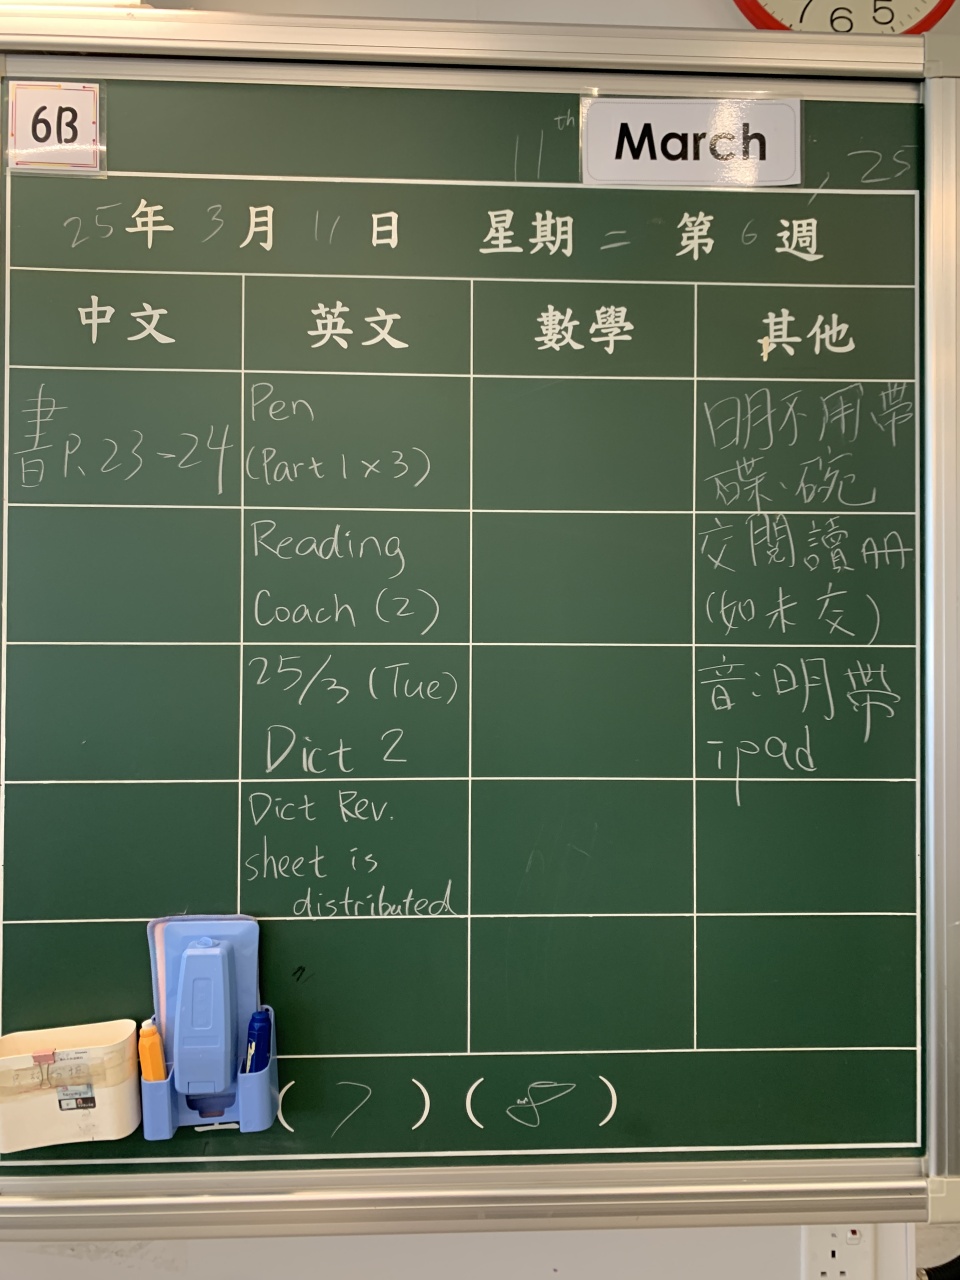 7 6 5
6B
11th March, 25
25年 3月 11日 星期二 第6週
中文 英文 數學 其他
書P.23-24
Pen
(Part 1 x 3)
明不用帶
碟、碗
Reading
Coach (2)
交閱讀冊
(如未交)
25/3 (Tue)
Dict 2
音:明帶
ipad
Dict Rev.
sheet is
distributed
( 7 ) ( 8 )